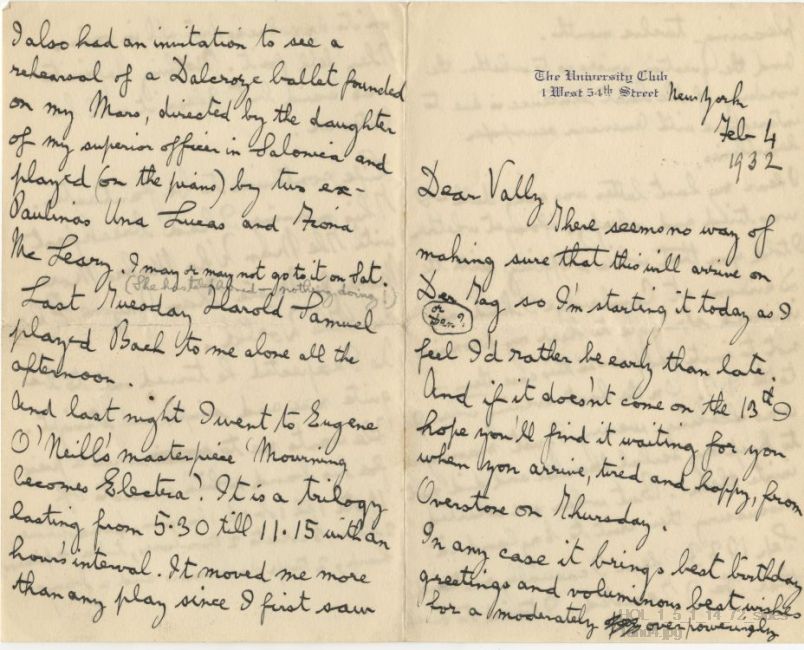 I also had an invitation to see a
rehearsal of a Dalcroze ballet founded
on my Mars, directed by the daughter
of my superior officer in Salonica and
played (on the piano) by two ex-
Paulinas Una Lucas and Fiona
Mc Leary. I may or may not go to it on Sat.
(She has telephoned - nothing doing!)
Last Tuesday Harold Samuel
played Bach to me alone all the
afternoon.
And last night I went to Eugene
O'Neill's masterpiece 'Mourning
becomes Electra'. It is a trilogy
lasting from 5.30 till 11.15 with an
hour's interval. It moved me more
than any play since I first saw
The University Club
1 West 54th Street
New York
Feb 4
1932
Dear Vally
There seems no way of
making sure that this will arrive on
Der Tag so I'm starting it today as I
or Den?
feel I'd rather be early than late.
And if it doesn't come on the 13th I
hope you'll find it waiting for you
when you arrive, tired and happy, from
Overstone on Thursday.
In any case it brings best birthday
greetings and voluminous best wishes
for a moderately overpoweringly
HOL_1_5_1_14_72_sides
1and4.jpg